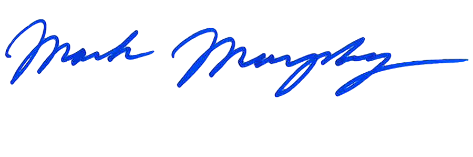 Mark Murphy